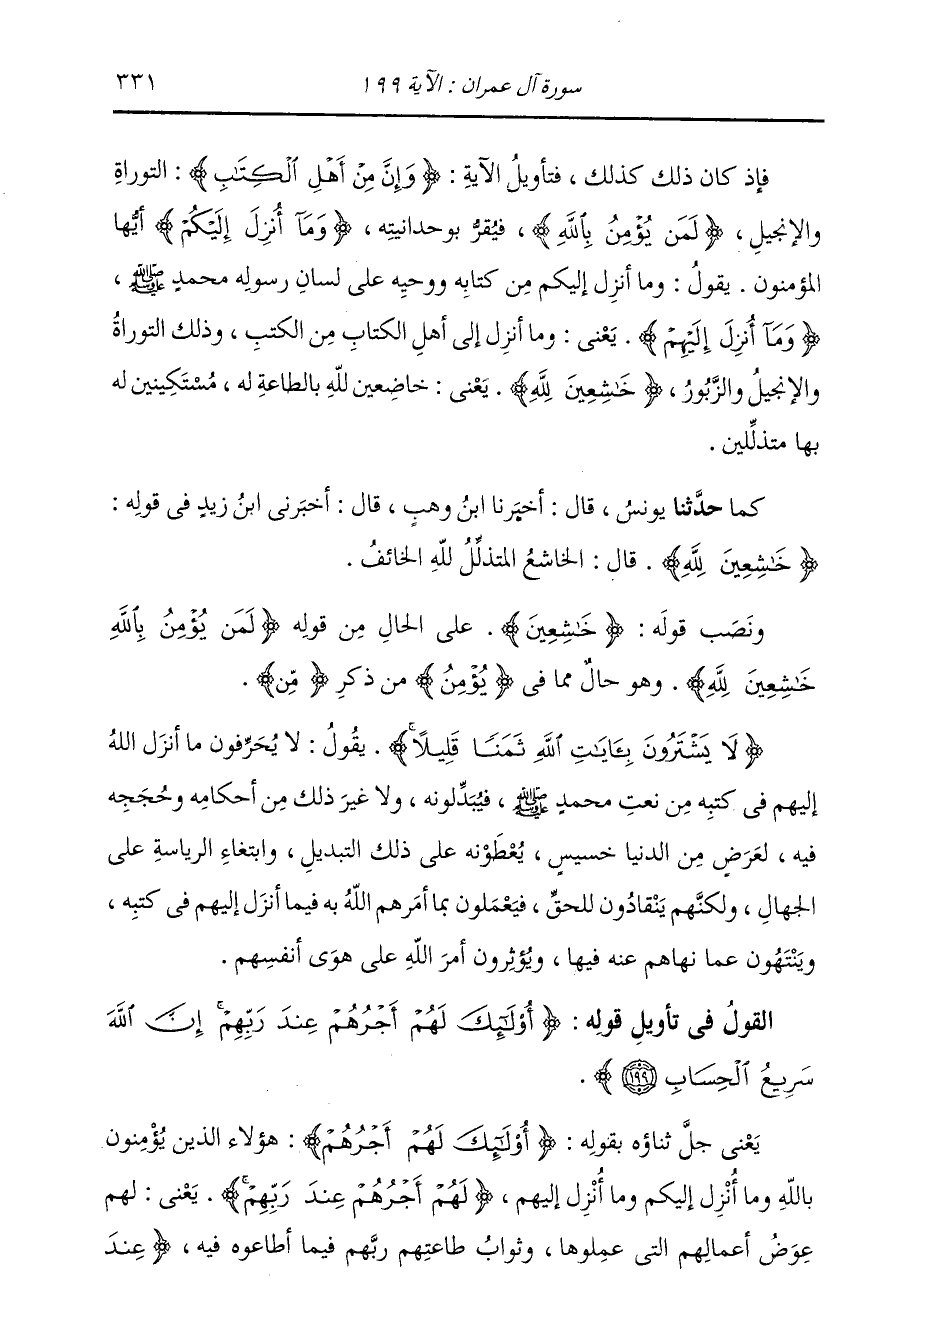 سورة آل عمران : الآية ١٩٩ ٣٣١
فإذ كان ذلك كذلك ، فتأويلُ الآيةِ : ﴿ وَإِنَّ مِنْ أَهْلِ ٱلْكِتَٰبِ ﴾ : التوراةِ
والإنجيلِ ، ﴿ لَمَن يُؤْمِنُ بِٱللَّهِ ﴾ ، فيُقرُّ بوحدانيتِه ، ﴿ وَمَآ أُنزِلَ إِلَيْكُمْ ﴾ أيُّها
المؤمنون . يقولُ : وما أنزِل إليكم مِن كتابِه ووحيِه على لسانِ رسولِه محمدٍ ﷺ ،
﴿ وَمَآ أُنزِلَ إِلَيْهِمْ ﴾ . يَعْنى : وما أنزِل إلى أهلِ الكتابِ مِن الكتبِ ، وذلك التوراةُ
والإنجيلُ والزَّبُورُ ، ﴿ خَٰشِعِينَ لِلَّهِ ﴾ . يَعْنى : خاضِعين للَّهِ بالطاعةِ له ، مُسْتَكِينين له
بها متذلِّلين .
كما حدَّثنا يونسُ ، قال : أخبَرنا ابنُ وهبٍ ، قال : أخبَرنى ابنُ زيدٍ فى قولِه :
﴿ خَٰشِعِينَ لِلَّهِ ﴾ . قال : الخاشعُ المتذلِّلُ للَّهِ الخائفُ .
ونَصَب قولَه : ﴿ خَٰشِعِينَ ﴾ . على الحالِ مِن قولِه ﴿ لَمَن يُؤْمِنُ بِٱللَّهِ
خَٰشِعِينَ لِلَّهِ ﴾ . وهو حالٌ مما فى ﴿ يُؤْمِنُ ﴾ من ذكرِ ﴿ مِّن ﴾ .
﴿ لَا يَشْتَرُونَ بِـَٔايَٰتِ ٱللَّهِ ثَمَنًا قَلِيلًا ۚ ﴾ . يقُولُ : لا يُحَرِّفون ما أنزَل اللهُ
إليهم فى كتبِه مِن نعتِ محمدٍ ﷺ ، فيُبَدِّلونه ، ولا غيرَ ذلك مِن أحكامِه وحُجَجِه
فيه ، لعَرَضٍ مِن الدنيا خسيسٍ ، يُعْطَوْنه على ذلك التبديلِ ، وابتغاءِ الرياسةِ على
الجهالِ ، ولكنَّهم يَنْقادُون للحقِّ ، فيَعْمَلون بما أمَرهم اللَّهُ به فيما أنزَل إليهم فى كتبِه ،
ويَنْتَهُون عما نهاهم عنه فيها ، ويُؤْثِرون أمرَ اللَّهِ على هوَى أنفسِهم .
القولُ فى تأويلِ قولِه : ﴿ أُوْلَٰٓئِكَ لَهُمْ أَجْرُهُمْ عِندَ رَبِّهِمْ ۗ إِنَّ ٱللَّهَ
سَرِيعُ ٱلْحِسَابِ ١٩٩ ﴾ .
يَعْنى جلَّ ثناؤه بقولِه : ﴿ أُوْلَٰٓئِكَ لَهُمْ أَجْرُهُمْ ﴾ : هؤلاء الذين يُؤْمِنون
باللَّهِ وما أُنْزِل إليكم وما أُنْزِل إليهم ، ﴿ لَهُمْ أَجْرُهُمْ عِندَ رَبِّهِمْ ۗ ﴾ . يَعْنى : لهم
عِوَضُ أعمالِهم التى عمِلوها ، وثوابُ طاعتِهم ربَّهم فيما أطاعوه فيه ، ﴿ عِندَ